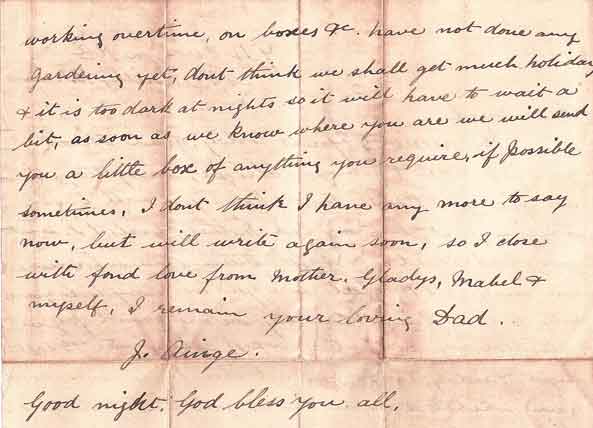 working overtime, on boxes &c. have not done any
gardening yet, dont think we shall get much holiday
& it is too dark at nights so it will have to wait a
bit, as soon as we know where you are we will send
you a little box of anything you require, if possible
sometimes, I dont think I have any more to say
now, but will write again soon, so I close
with fond love from Mother, Gladys, Mabel &
myself, I remain your loving Dad.
J. Ainge.
Good night. God bless you all,